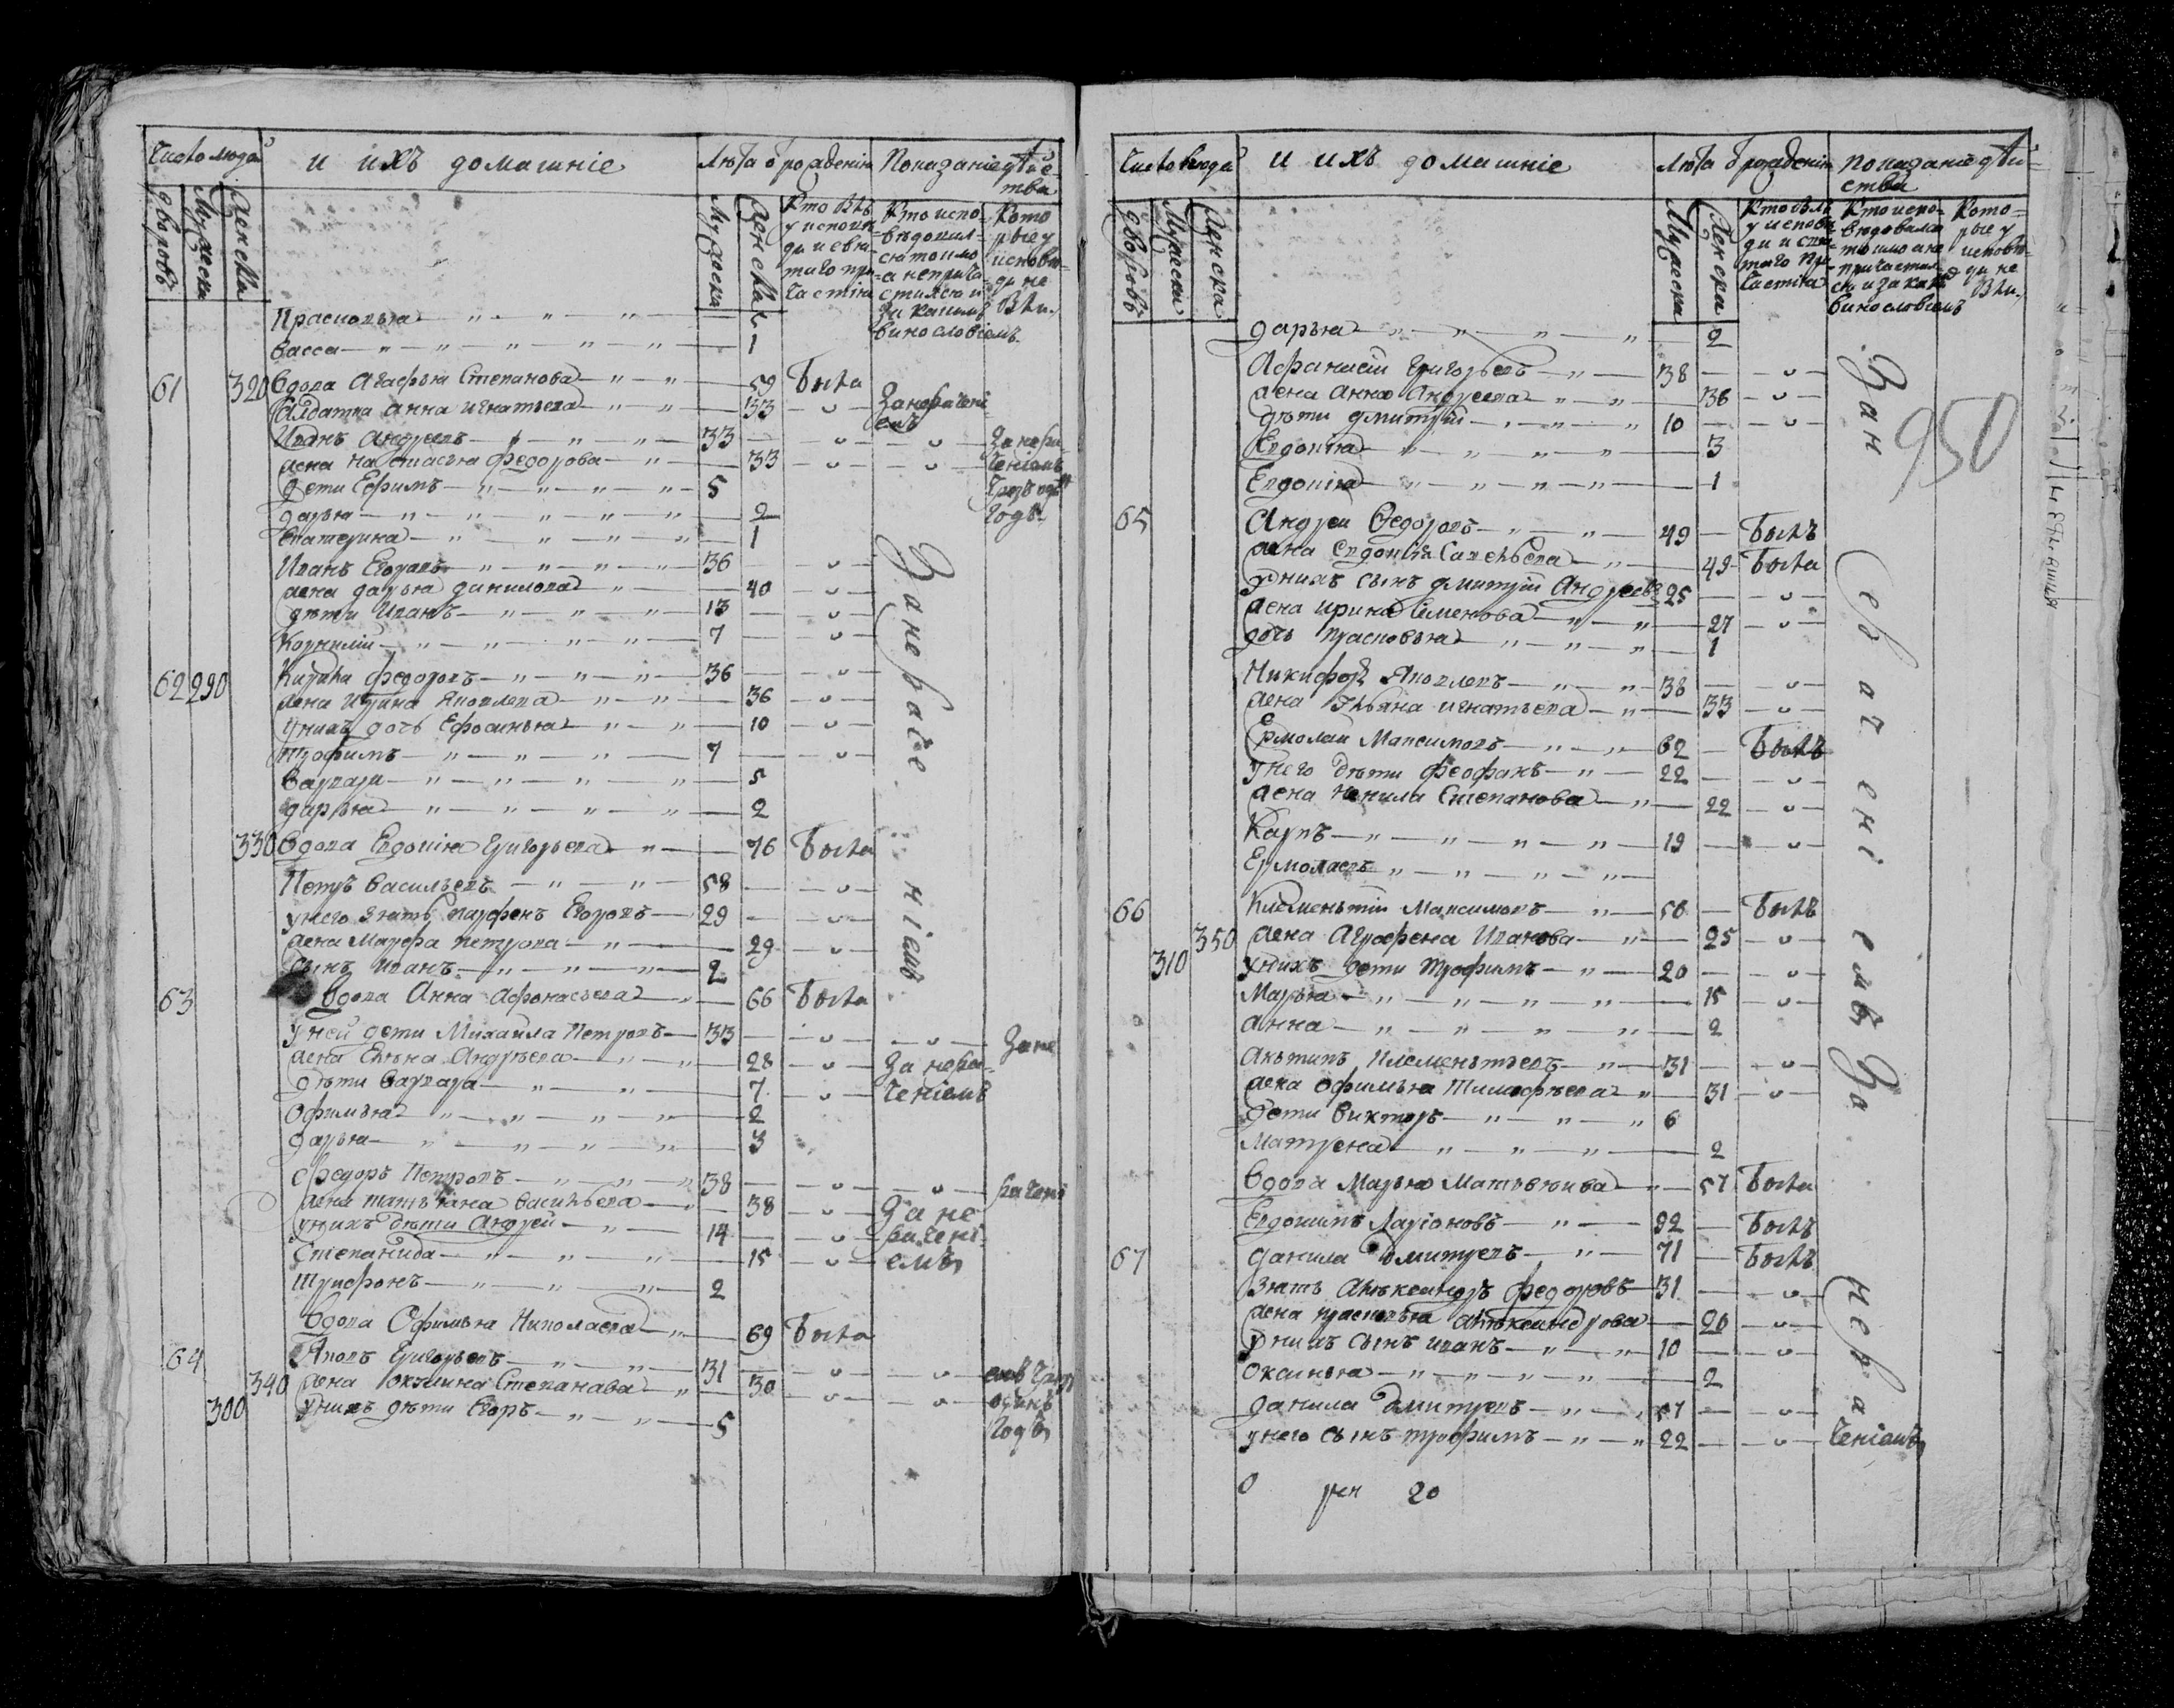 Число людей и ихъ домашніе Лѣта ѿ рожденія Показаніе дѣйства
дворовъ Мужеска Женска Мужеска Женска Кто былъ у исповѣди и святаго причастія Кто исповѣдовался токмо а не причастился и за какимъ винословіемъ Которые у исповѣди не были
Прасковья
Васса 1
61 320 Вдова Агафья Степанова 59 Была
Салдатка Анна Игнатьева 33 За небраченіемъ
Иванъ Андреевъ 33
жена Настасья Федорова 33
дети Ефимъ 5
Дарья 2 годъ
Екатерина 1
Иванъ Егоровъ 36
жена Дарья Данилова 40
дѣти Иванъ 13
Корнилій 7
62 290 Кирила Федоровъ 36
жена Ирина Яковлева 36
у нихъ дочь Ефросинья 10
Трофимъ 7
Варвара 5
Дарья 2
330 Вдова Евдокія Григорьева 76 Была
Петръ Васильевъ 58
у него зять Парфенъ Егоровъ 29
жена Марфа Петрова 29
сынъ Иванъ 2
63 Вдова Анна Афонасьева 66 Была
у ней дети Михайла Петровъ 33 За не
жена Елена Андрѣева 28 За небра
дѣти Варвара 7 ченіемъ
Офимья 2
Дарья 3
Федоръ Петровъ 38
жена Татьяна Васильева 38 За не
у нихъ дѣти Андрей 14 брачені
Степанида 15 емъ
Трифонъ 2
Вдова Офимья Николаева 69 Была
64 Яковъ Григорьевъ 31
340 жена Окулина Степанава 30 одинъ
300 у нихъ дѣти Егоръ 5 годъ
За небраченіемъ
Число людей и ихъ домашніе Лѣта ѿ рожденія Показаніе дѣйства
дворовъ Мужеска Женска Мужеска Женска Кто былъ у исповѣди и святаго причастія Кто исповѣдовался токмо а не причастился и за какимъ винословіемъ Которые у исповѣди не были
Дарья 2
Афанасій Григорьевъ 38
жена Анна Андреева 36
дѣти Дмитрій 10
Евдокія 3
Евдокія 1
950
65 Андрей Федоровъ 49 Былъ
жена Евдокія Савельева 49 Была
у нихъ сынъ Дмитрій Андреевъ 25
жена Ирина Семенова 27
дочь Прасковья 1
Никифоръ Яковлевъ 38
жена Ульяна Игнатьева 33
Ермолай Максимовъ 62 Былъ
у него дѣти Феофанъ 22
жена Ненила Степанова 22
Карпъ 19
Ермолаевъ
66 Клеменьтій Максимовъ 50 Былъ
350 жена Аграфена Иванова 25
310 у нихъ дети Трофимъ 20
Марья 15
Анна 2
Анътипъ Клеменътьевъ 31
жена Офимья Тимофѣева 31
дети Викторъ 6
Матрена 2
Вдова Марья Матьвѣива 57 Была
Евдокимъ Ларіоновъ 92 Былъ
67 Данила Дмитревъ 71 Былъ
зять Алѣксандръ Федоровъ 31
жена Прасковья Алѣксандрова 26
у нихъ сынъ Иванъ 10
Оксинья 2
Данила Дмитревъ 57
у него сынъ Трофимъ 22
За небраченіемъ За небраченіемъ
20